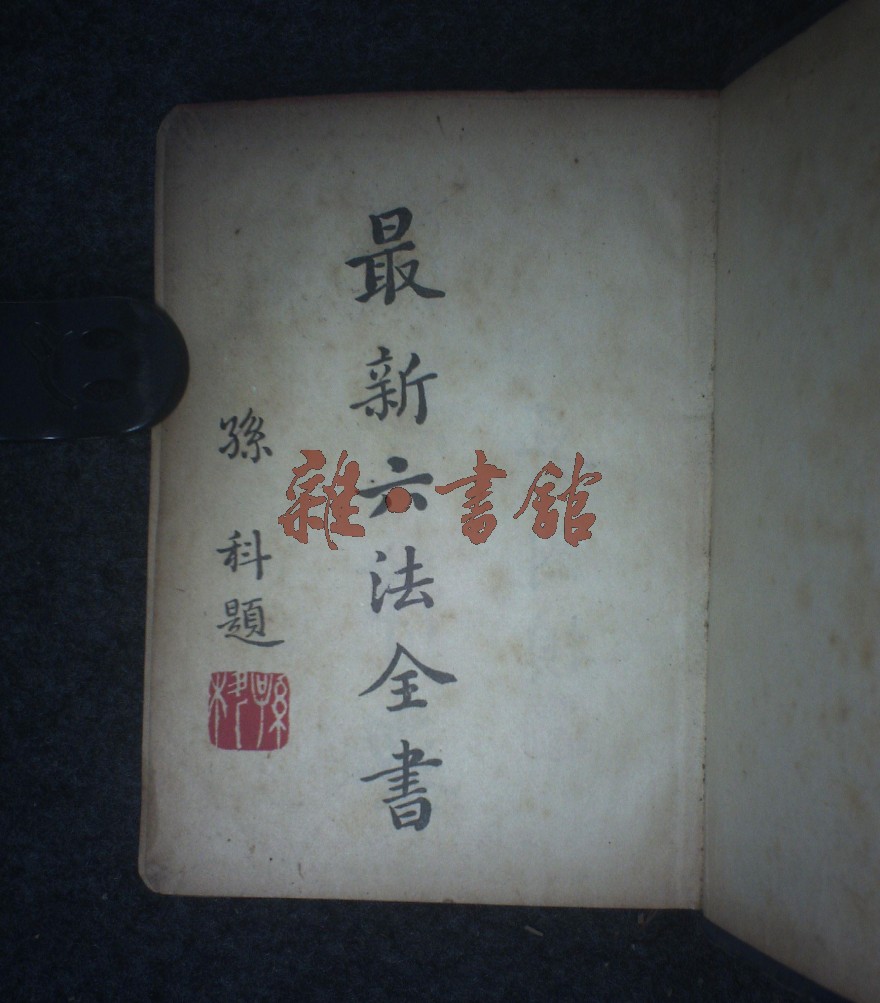 最新六法全書
孫科題
孫科
雜·書館